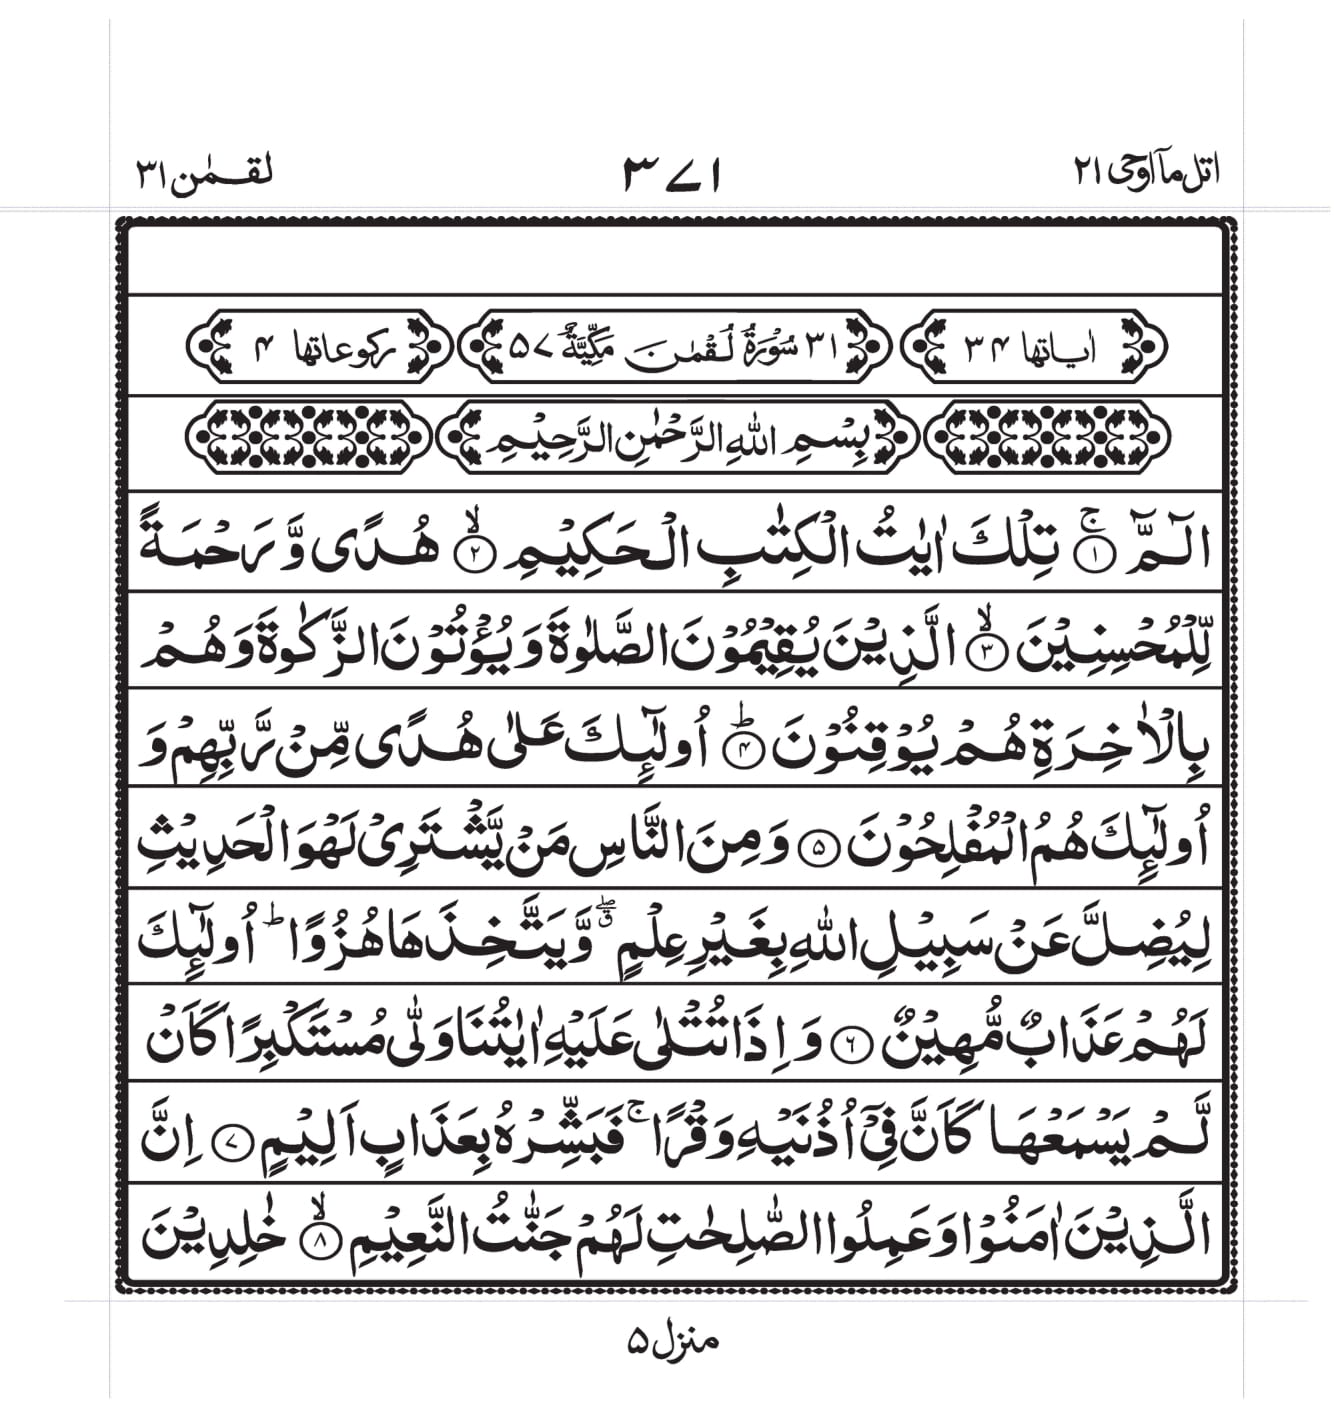 اتل ماۤ اوحی ۲۱ ۳۷۱ لقمٰن ۳۱
اٰیاتها ۳۴ ۳۱ سُوْرَةُ لُقْمٰنَ مَكِّيَّةٌ ۵۷ رکوعاتها ۴
بِسْمِ اللّٰهِ الرَّحْمٰنِ الرَّحِيْمِ
الٓـمّٓ ۚ﴿۱﴾ تِلْكَ اٰيٰتُ الْكِتٰبِ الْحَكِيْمِ ۙ﴿۲﴾ هُدًى وَّرَحْمَةً
لِّلْمُحْسِنِيْنَ ۙ﴿۳﴾ الَّذِيْنَ يُقِيْمُوْنَ الصَّلٰوةَ وَيُؤْتُوْنَ الزَّكٰوةَ وَهُمْ
بِالْاٰخِرَةِ هُمْ يُوْقِنُوْنَ ؕ﴿۴﴾ اُولٰٓئِكَ عَلٰى هُدًى مِّنْ رَّبِّهِمْ وَ
اُولٰٓئِكَ هُمُ الْمُفْلِحُوْنَ ﴿۵﴾ وَمِنَ النَّاسِ مَنْ يَّشْتَرِىْ لَهْوَ الْحَدِيْثِ
لِيُضِلَّ عَنْ سَبِيْلِ اللّٰهِ بِغَيْرِ عِلْمٍ ۖق وَّيَتَّخِذَهَا هُزُوًا ؕ اُولٰٓئِكَ
لَهُمْ عَذَابٌ مُّهِيْنٌ ﴿۶﴾ وَاِذَا تُتْلٰى عَلَيْهِ اٰيٰتُنَا وَلّٰى مُسْتَكْبِرًا كَاَنْ
لَّمْ يَسْمَعْهَا كَاَنَّ فِىْۤ اُذُنَيْهِ وَقْرًا ۚ فَبَشِّرْهُ بِعَذَابٍ اَلِيْمٍ ﴿۷﴾ اِنَّ
الَّذِيْنَ اٰمَنُوْا وَعَمِلُوا الصّٰلِحٰتِ لَهُمْ جَنّٰتُ النَّعِيْمِ ۙ﴿۸﴾ خٰلِدِيْنَ
منزل ۵